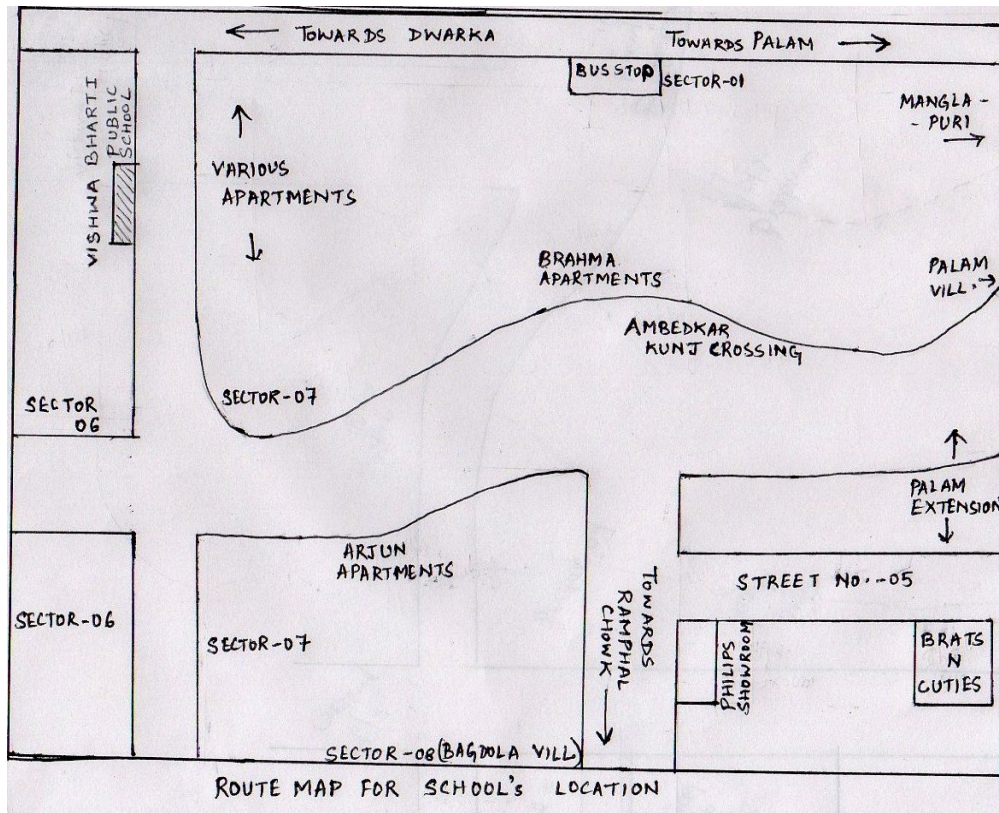 TOWARDS DWARKA
TOWARDS PALAM
BUS STOP
SECTOR-01
MANGLA-
-PURI
VISHWA BHARTI
PUBLIC
SCHOOL
VARIOUS
APARTMENTS
BRAHMA
APARTMENTS
PALAM
VILL.
AMBEDKAR
KUNJ CROSSING
SECTOR-07
SECTOR
06
PALAM
EXTENSION
ARJUN
APARTMENTS
STREET NO.-05
TOWARDS
RAMPHAL
CHOWK
SECTOR-06
SECTOR-07
PHILIPS
SHOWROOM
BRATS
N
CUTIES
SECTOR-08(BAGDOLA VILL)
ROUTE MAP FOR SCHOOL'S LOCATION